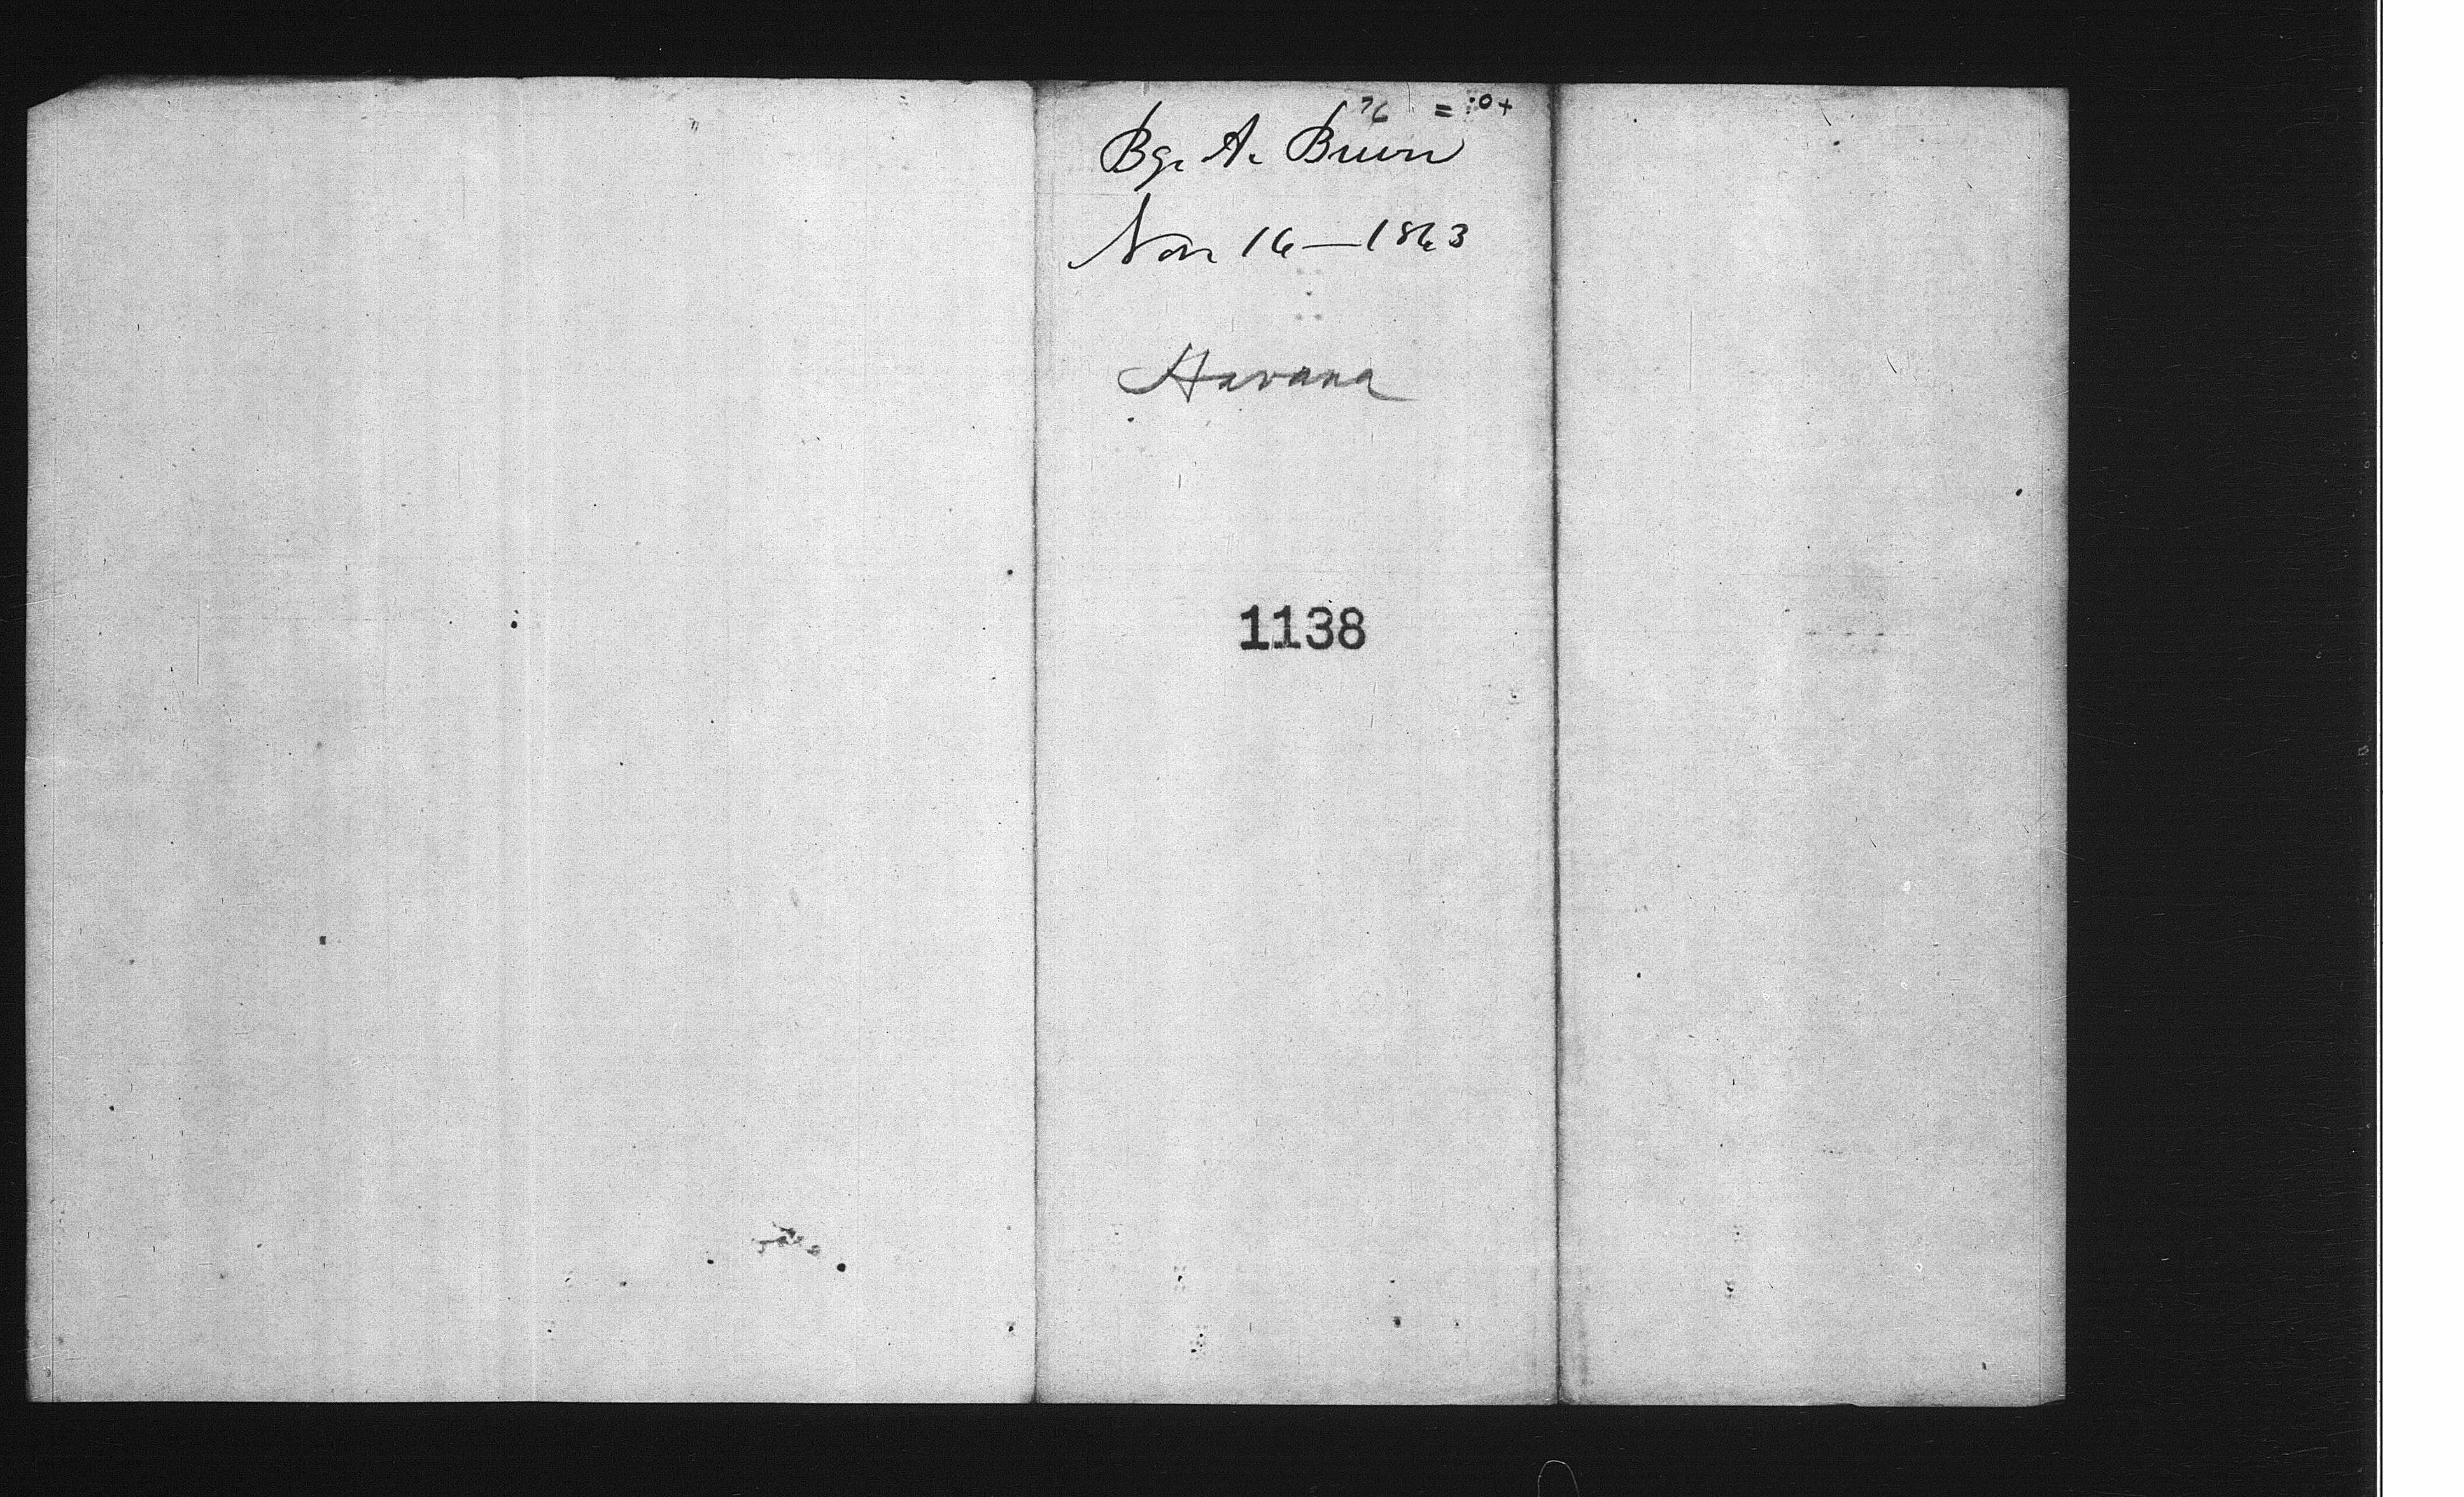 76 = :0+
Bg. A. Bruen
Nov 16—1863
Havana
1138